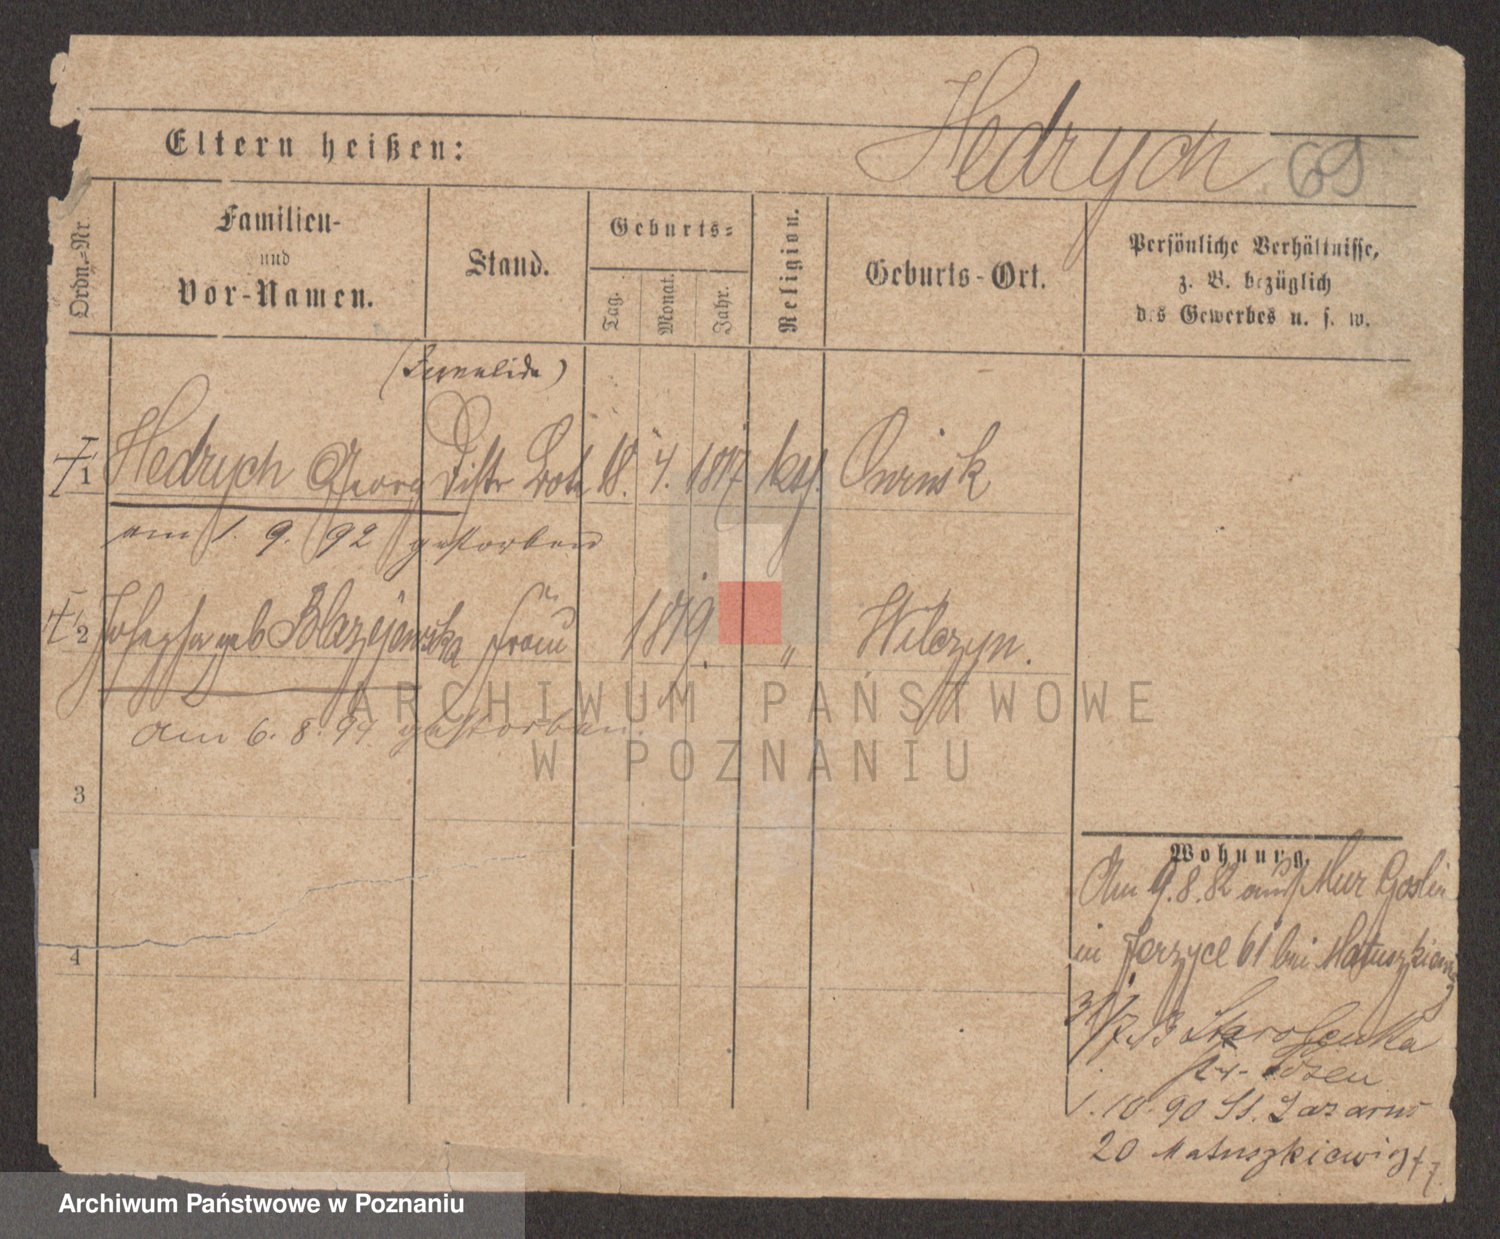 Hedrych 69
Eltern heißen:
Ordn.-Nr.
Familien-
und
Vor-Namen.
Stand.
Geburts-
Tag.
Monat.
Jahr.
Religion.
Geburts-Ort.
Persönliche Verhältnisse,
z. B. bezüglich
des Gewerbes u. s. w.
(Invalide)
1 Hedrych Georg Distr Bote 18. 4. 1817 kth. Owinsk
am 1. 9. 92 gestorben
2 Josepha geb Blazejewska Frau 1819. " Wilczyn.
am 6. 8. 94 gestorben.
3
4
Wohnung.
Am 9.8.82 aus Mur Goslin
in Jerzyce 61 bei Matuszkiewicz
31/7. 83 Starolenka
Kr. Posen
1. 10. 90 St. Lazarus
20 Matuszkiewicz
ARCHIWUM PAŃSTWOWE
W POZNANIU
Archiwum Państwowe w Poznaniu